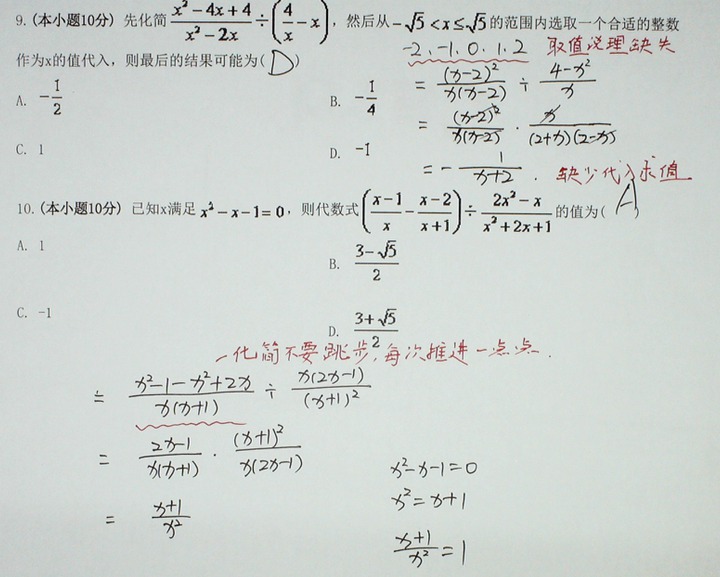 9.(本小题10分) 先化简 (x²-4x+4)/(x²-2x) ÷ (4/x - x)，然后从 -√5<x≤√5 的范围内选取一个合适的整数
-2、-1、0、1、2 取值说理缺失
作为x的值代入，则最后的结果可能为( D )
= (x-2)²/x(x-2) ÷ (4-x²)/x
A. -1/2
B. -1/4
= (x-2)²/x(x-2) · x/(2+x)(2-x)
C. 1
D. -1
= - 1/(x+2) . 缺少代入求值
10.(本小题10分) 已知x满足 x²-x-1=0，则代数式 ((x-1)/x - (x-2)/(x+1)) ÷ (2x²-x)/(x²+2x+1) 的值为( A )
A. 1
B. (3-√5)/2
C. -1
D. (3+√5)/2
化简不要跳步，每次推进一点点.
= (x²-1-x²+2x)/x(x+1) ÷ x(2x-1)/(x+1)²
= (2x-1)/x(x+1) · (x+1)²/x(2x-1)
= (x+1)/x²
x²-x-1=0
x²=x+1
(x+1)/x²=1